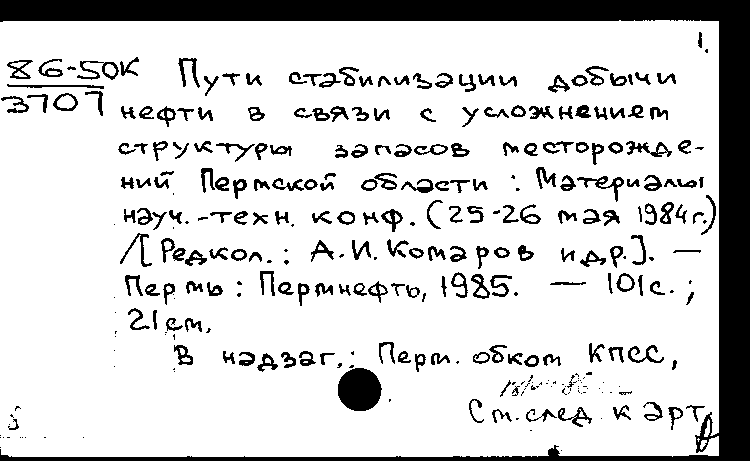 1.
86-50К Пути стабилизации добычи
3707 нефти в связи с усложнением
структуры запасов месторожде-
ний Пермской области : Материалы
науч.-техн. конф. (25-26 мая 1984г.)
/[Редкол.: А.И. Комаров и др.]. —
Пермь : Пермнефть, 1985. — 101с. ;
21см.
В надзаг.: Перм. обком КПСС,
См. след к арт